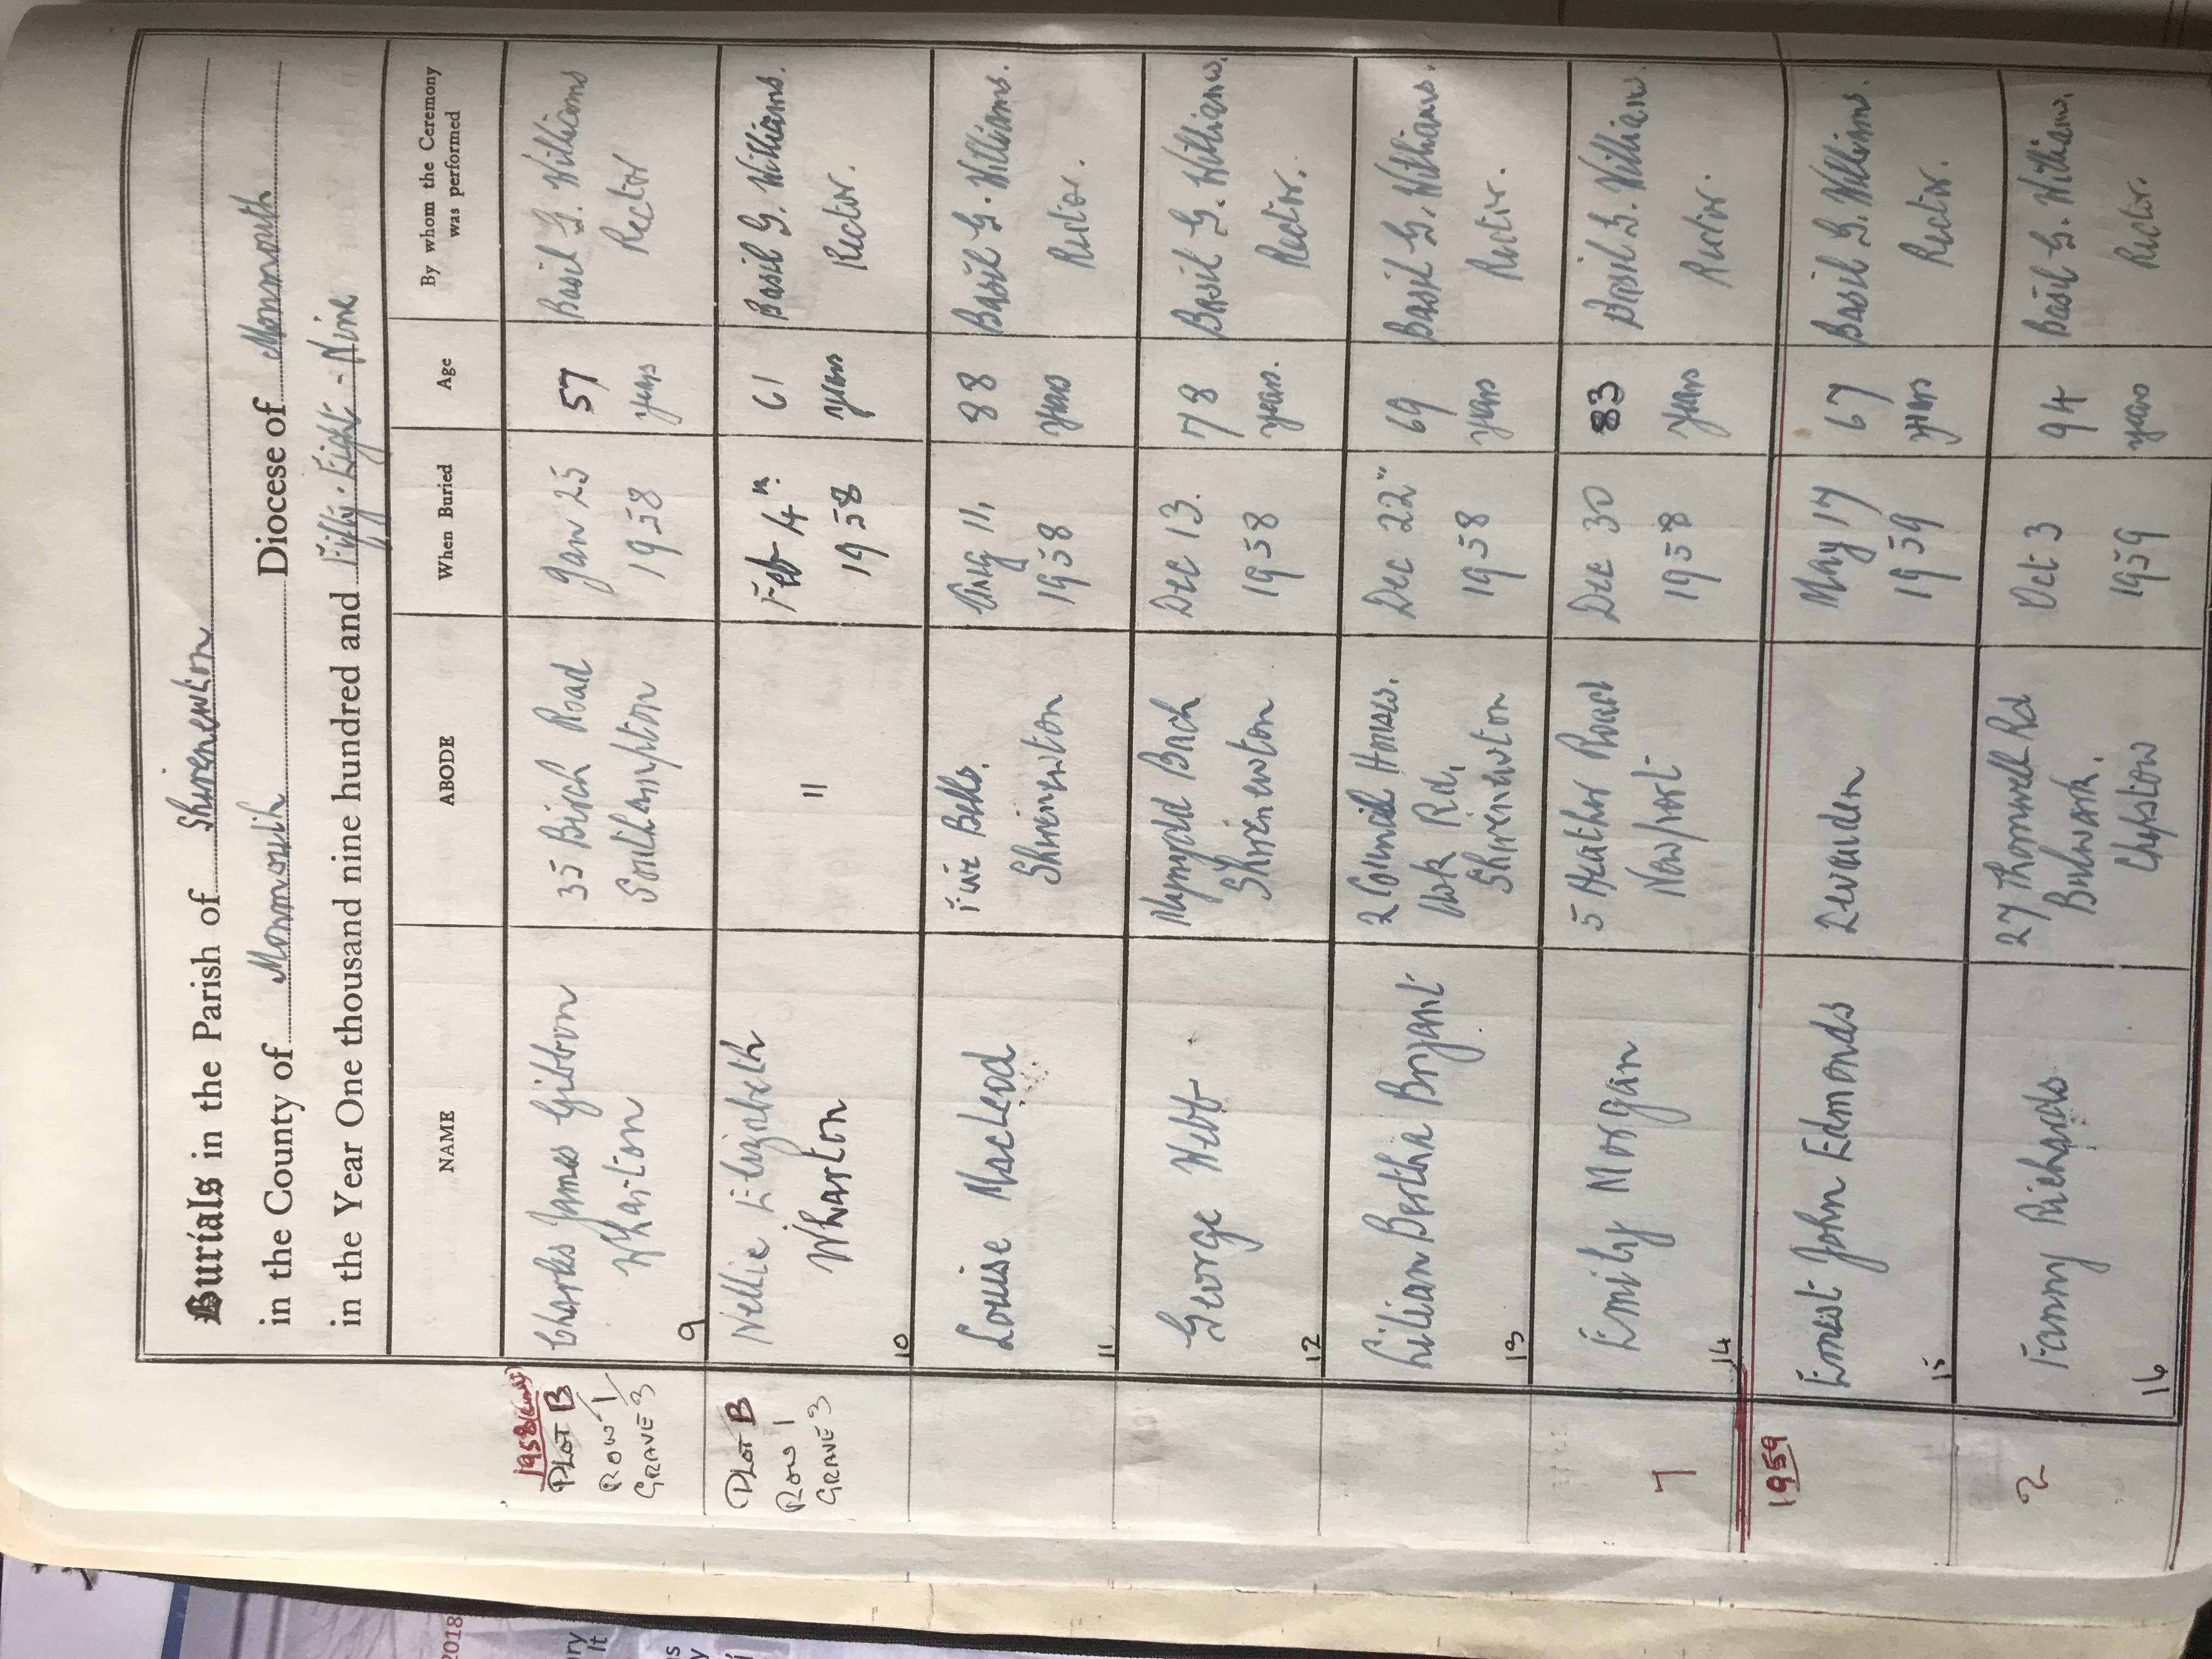 Burials in the Parish of Shirenewton
in the County of Monmouth Diocese of Monmouth
in the Year One thousand nine hundred and Fifty-Eight - Nine
NAME ABODE When Buried Age By whom the Ceremony was performed
1958 
PLOT B
ROW 1
GRAVE 3
Charles James Gibbon
Wharton
9
35 Birch Road
Southampton
Jan 25
1958
57
years
Basil G. Williams
Rector
PLOT B
ROW 1
GRAVE 3
Nellie Elizabeth
Wharton
10
"
Feb 4th
1958
61
years
Basil G. Williams.
Rector.
Louise MacLeod
11
Five Bells.
Shirenewton
Aug 11,
1958
88
years
Basil G. Williams.
Rector.
George Webb
12
Shirenewton
Dec 13.
1958
78
years.
Basil G. Williams.
Rector.
Lilian Bertha Bryant
13
2 Council Houses.
Usk Rd,
Shirenewton
Dec 22"
1958
69
years
Basil G. Williams.
Rector.
7
Emily Morgan
14
5 Heather Road
Newport
Dec 30
1958
83
years
Basil G. Williams.
Rector.
1959
Ernest John Edmonds
15
Devauden
May 17
1959
67
years
Basil G. Williams.
Rector.
2
Fanny Richards
16
27 Thornwell Rd
Bulwark.
Chepstow
Oct 3
1959
94
years
Basil G. Williams.
Rector.
2018